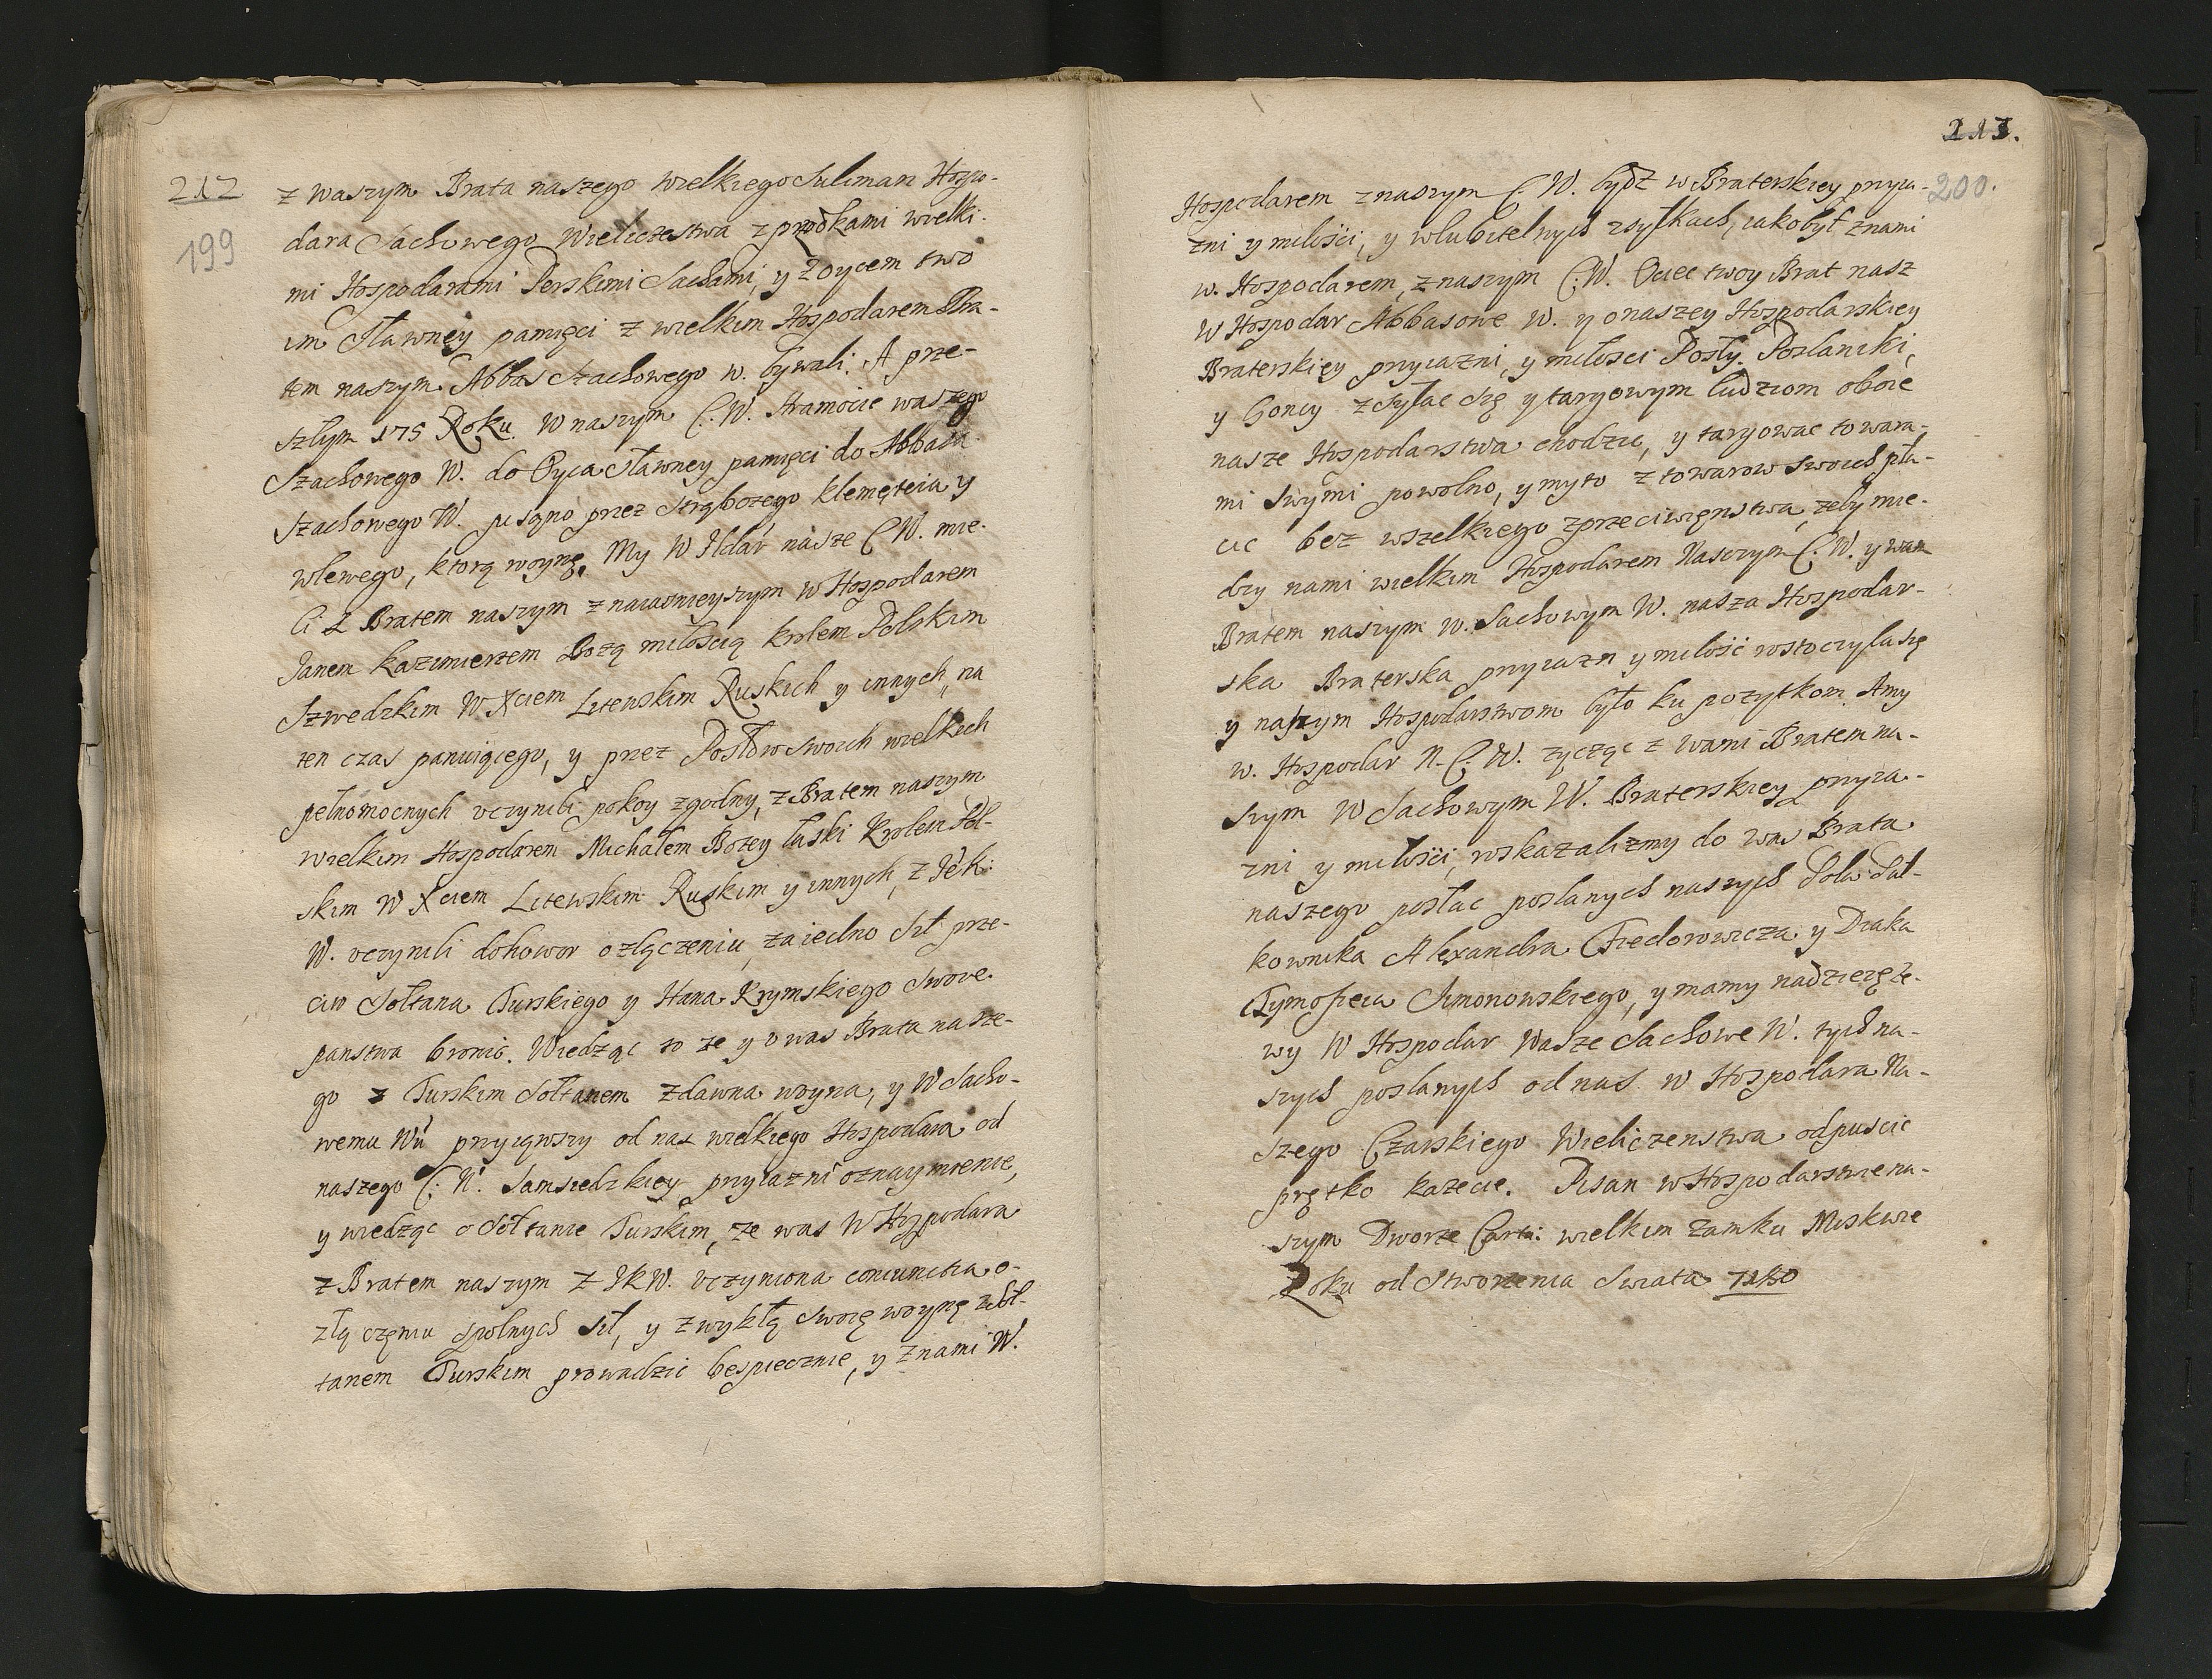 212
199
z waszym Brata naszego wielkiego Suliman Hospo-
dara Sachowego Wieliczestwa z przodkami wielki-
mi Hospodarami Perskimi Sachami, y z oycem two
im sławney pamięci z wielkim Hospodarem Bra-
tem naszym Abbas Szachowego w. bywali. A prze-
szłym 175 Roku. W naszym C: W. Hramocie waszego
Szachowego W. do Oyca sławney pamięci do Abbasa
Szachowego W. pisano przez
wlewego, ktorą woynę. My W Hdar nasze C W. mie-
li z Bratem naszym z naiasnieyszym w Hospodarem
Janem Kazimierzem Bożą miłoscią krolem Polskim
Szwedzkim W Xciem Litewskim Ruskich y innych na
ten czas panuiącego, y przez Posłow swoich wielkich
pełnomocnych uczynili pokoy zgodny, z Bratem naszym
wielkim Hospodarem Michałem Bożey łaski Krolem Pol-
skim W Xciem Litewskim Ruskim y innych, z Je K:
W. uczynili dohowor o złączeniu, za iedno sił prze-
ciw Sołtana Turskiego y Hana Krymskiego swoie
panstwa bronic. Wiedząc to ze y u was Brata nasze-
go z Turskim Sołtanem zdawna woyna, y W Sacho-
wemu Wu przyiąwszy od nas wielkiego Hospodara od
naszego C: W. Samsiedzkiey przyiazni oznaymienie,
y wiedząc o Sołtanie Turskim, ze was W Hospodara
z Bratem naszym z JKW. uczyniona coniunctia o-
złączeniu spolnych sił, y zwykłą swoię woynę z Soł-
tanem Turskim prowadzic bespiecznie, y z nami W.
213.
200.
Hospodarem z naszym C: W. bydz w Braterskiey przyia-
zni y miłosci, y w lubitelnych zsyłkach, iako był z nami
w. Hospodarem, z naszym C: W. Ociec twoy Brat nasz
W Hospodar Abbasowe W. y o naszey Hospodarskiey
Braterskiey przyiazni, y miłosci Posły. Poslaniki,
y Goncy zsyłac się y targowym ludziom oboie
nasze Hospodarstwa chodzic, y targowac towara-
mi swymi powolno, y myto z towarow swoich pła-
cic bez wszelkiego zprzeciwięnstwa, zeby mie-
dzy nami wielkim Hospodarem Naszym C: W. y wam
Bratem naszym w. Sachowym W. nasza Hospodar-
ska Braterska przyiazn y miłość rostoczyła się
y naszym Hospodarstwom było ku pozytkom. A my
w. Hospodar N. C: W. zycząc z wami Bratem na-
szym W Sachowym W. Braterskiey przyia-
zni y miłosci, wskazalizmy do was Brata
naszego posłac poslanych naszych Poł
kownika Alexandra Fiedorowicza y Diaka
Tymofieia Simonowskiego, y mamy nadzieię ze
wy W Hospodar Wasze Sachowe W. tych na-
szych poslanych od nas W Hospodara Na-
szego Czarskiego Wieliczenstwa odpuscic
prętko kazecie. Pisan w Hospodarstwie na-
szym Dworze Cars: wielkim zamku Moskwie
Roku od Stworzenia Swiata 7180